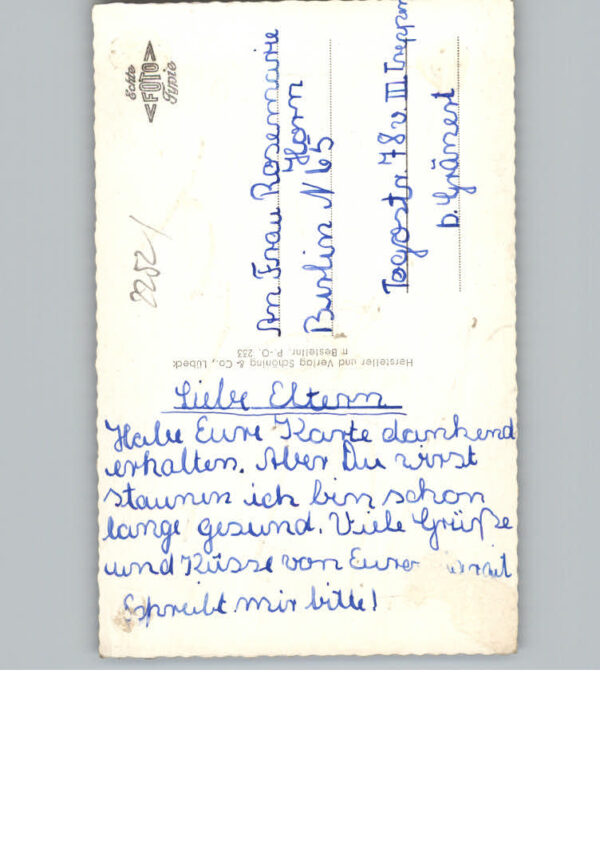 Echte
FOTO
Typie
2252/
An Frau Rosemarie
Horn
Berlin N 65
Togostr. 78v III Treppen
b. Gränert
Hersteller und Verlag Schöning & Co., Lübeck
m Bestellnr. P.-O. 233
Liebe Eltern
Habe Eure Karte dankend
erhalten. Aber Du wirst
staunen ich bin schon
lange gesund. Viele Grüße
und Küsse von Eurer
Schreibt mir bitte!